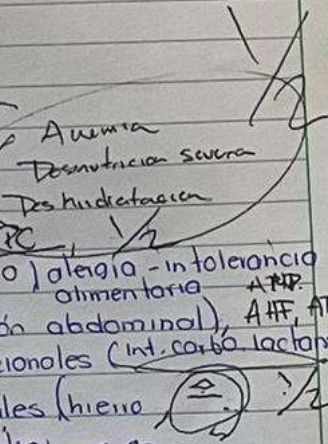 Anemia
Desnutricion severa
Deshidratacion
PC, 1/2
o) alergia - intolerancia
alimentaria APP.
ón abdominal), AHF, AP
cionales (int. carbo. lactan
les (hierro, 1/2